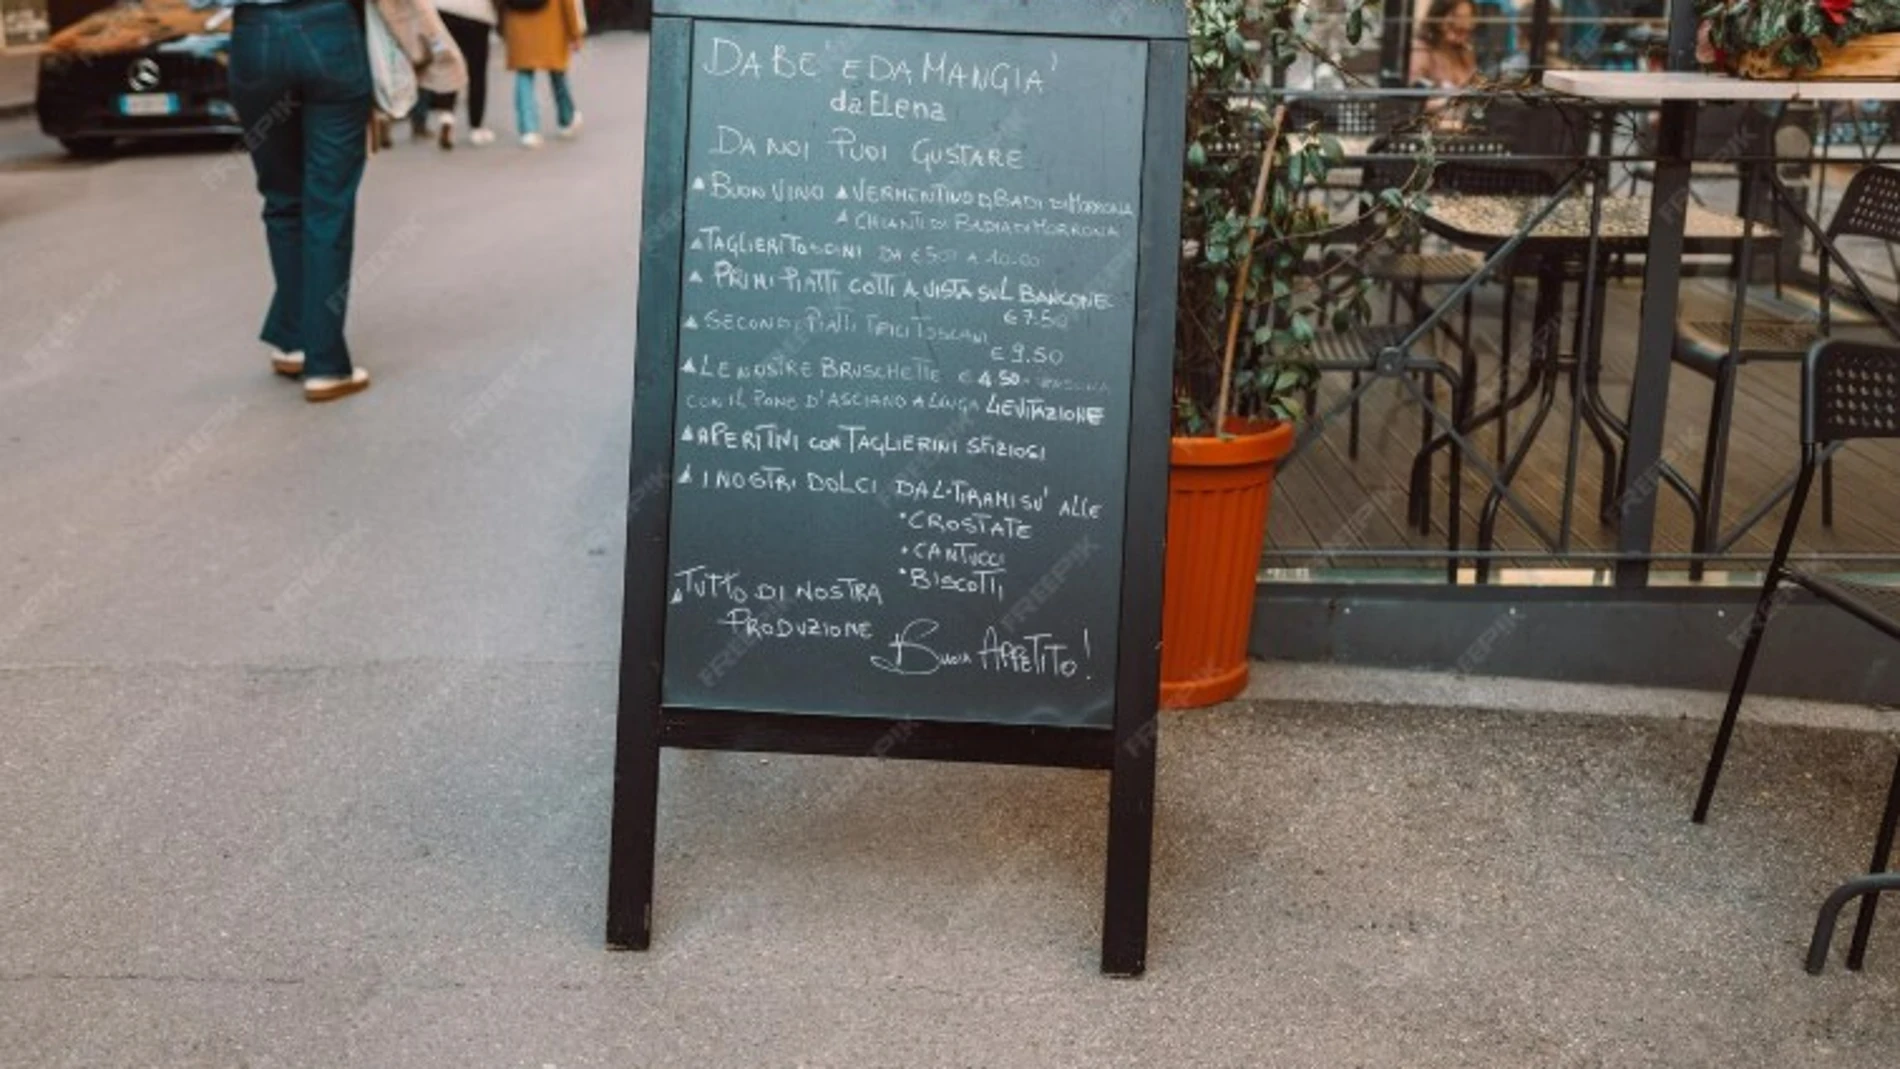 DA BE' E DA MANGIA'
da Elena
DA NOI PUOI GUSTARE
BUON VINO VERMENTINO DI BADIA DI MORRONA
CHIANTI DI BADIA DI MORRONA
TAGLIERI TOSCANI DA € 5.00 A 10.00
PRIMI PIATTI COTTI A VISTA SUL BANCONE
€ 7.50
SECONDI PIATTI TIPICI TOSCANI
€ 9.50
LE NOSTRE BRUSCHETTE € 4.50
CON IL PANE D'ASCIANO A LUNGA LIEVITAZIONE
APERITIVI con TAGLIERINI SFIZIOSI
I NOSTRI DOLCI DAL TIRAMISU' ALLE
• CROSTATE
• CANTUCCI
• BISCOTTI
TUTTO DI NOSTRA
PRODUZIONE
Buon APPETITO!